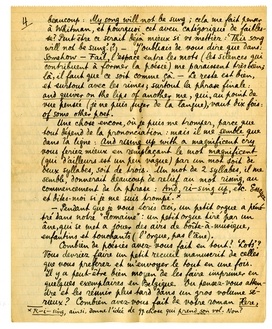 4
beaucoup : My song will not be sung ; cela me fait penser
à Whitman, et pourquoi cet aveu catégorique de failli-
te? Peut-être ce serait bien mieux si vous mettiez : "This song
will not be sung"?) — J'oubliais de vous dire que dans:
Somehow — Fail, l'espace entre les mots (les silences qui
contribuent à former la poésie) me paraissent très bien
là, il faut que ce soit comme çà. — Le reste est bien,
et surtout avec les rimes ; surtout la phrase finale :
and quiver on the lips of another me ; qui, au point de
vue pensée (je ne puis juger de la langue), vaut dix fois:
of some other poet.
Une chose encore, où je puis me tromper, parce que
tout dépend de la prononciation : mais il me semble que
dans la ligne : And rising up with a magnificent cry
vous feriez mieux en remplaçant le mot magnificent
(qui d'ailleurs est un peu vague) par un mot soit de
deux syllabes, soit de trois. Un mot de 2 syllabes, il me
semble, donnerait beaucoup de relief au mot rising, au
commencement de la phrase : And, ri-sing up, etc.
et dites-moi si je me suis trompé?
— Pendant que je vous écris çà, un petit orgue a péné-
tré dans notre "domaine" : un petit orgue tiré par un
âne, qui se met à jouer des airs de boîte-à-musique,
enfantins et touchants (l'orgue, pas l'âne).
Combien de poésies avez-vous fait en tout?
Vous devriez faire un petit recueil manuscrit de celles
que vous préférez et m'envoyer le tout en une fois.
Il y a peut-être bien moyen de les faire imprimer en
quelques exemplaires en Belgique. Ou pensez-vous atten-
dre et les réunir plus tard dans un gros volume sé-
rieux? Combien avez-vous fait de votre roman Here,
* R-i-ing, ainsi, donne l'idée de qq chose qui prend son vol. Non?